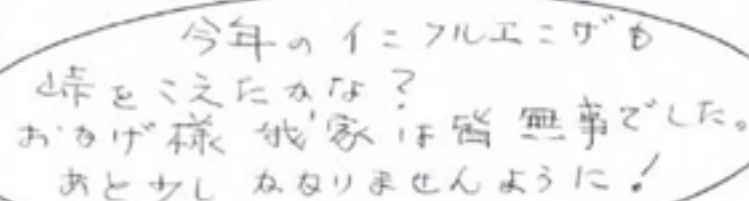 今年のインフルエンザも
峠をこえたかな？
おかげ様 我家は皆 無事でした。
あと少し かかりませんように！